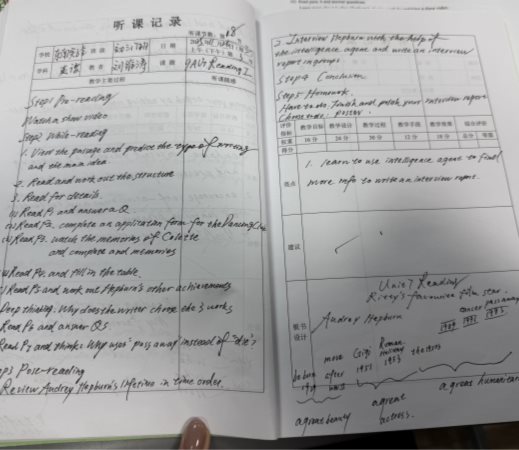 听课记录
听课节数：第 18 节
学校
班级
日期
学科 英语 教者
课题 9AU7 Reading I
教学主要过程
听课随感
Step1 Pre-reading
Watch a show video
Step2 While-reading
1. View the passage and predice the type of writing
and the main idea
2. Read and work out the structure
3. Read for details.
Read P1 and answer a Q
Read P2. complete an application form for the Dancing
Read P3. watch the memories of Colette
and complete and memories
Read P4. and fill in the table.
Read P5 and work out Hepburn's other achievements
Deep thinking. Why does the writer choose the 3 works
Read P6 and answer Qs
Read P7 and think: Why uses "pass away" instead of "die"?
Step3 Post-reading
Review Audrey Hepburn's lifetime in time order.
2. Interview Hepburn with the help of
the intelligence agent and write an interview
report in groups
Step4 Conclusion
Step5 Homework.
Have to do: Finish and polish your interview report
Choose to do: poster.
评价指标 教学目标 教学设计 教学过程 教学手段 教学效果 综合评价
权重 10分 20分 30分 12分 18分 总分 等第
得分
亮点
1. learn to use intelligence agent to find
more info to write an interview report.
建议
板书设计
Unit 7 Reading
Kitty's favourite film star.
Audrey Hepburn
cancer pass away
1989 1992 1993
be born move after Gigi Roman Holiday the 1950s
1929 WWII 1951 1953
a great beauty
a great actress.
a great humanitarian